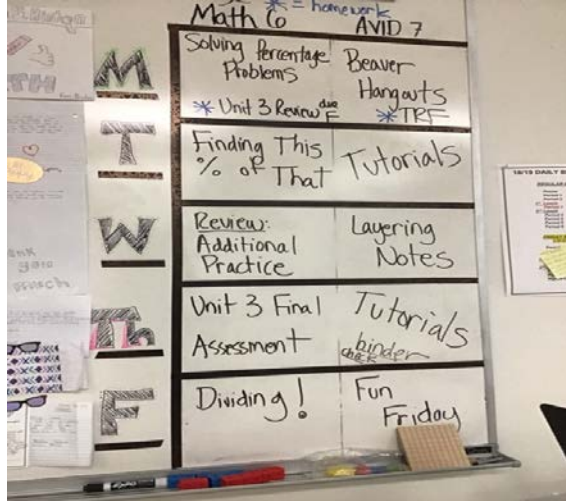 * = homework
Math 6 AVID 7
M
Solving Percentage
Problems
* Unit 3 Review due F
Beaver
Hangouts
* TRF
T
Finding This
% of That
Tutorials
W
Review:
Additional
Practice
Layering
Notes
Th
Unit 3 Final
Assessment
Tutorials
binder
check
F
Dividing!
Fun
Friday
18/19 DAILY B
EXPO